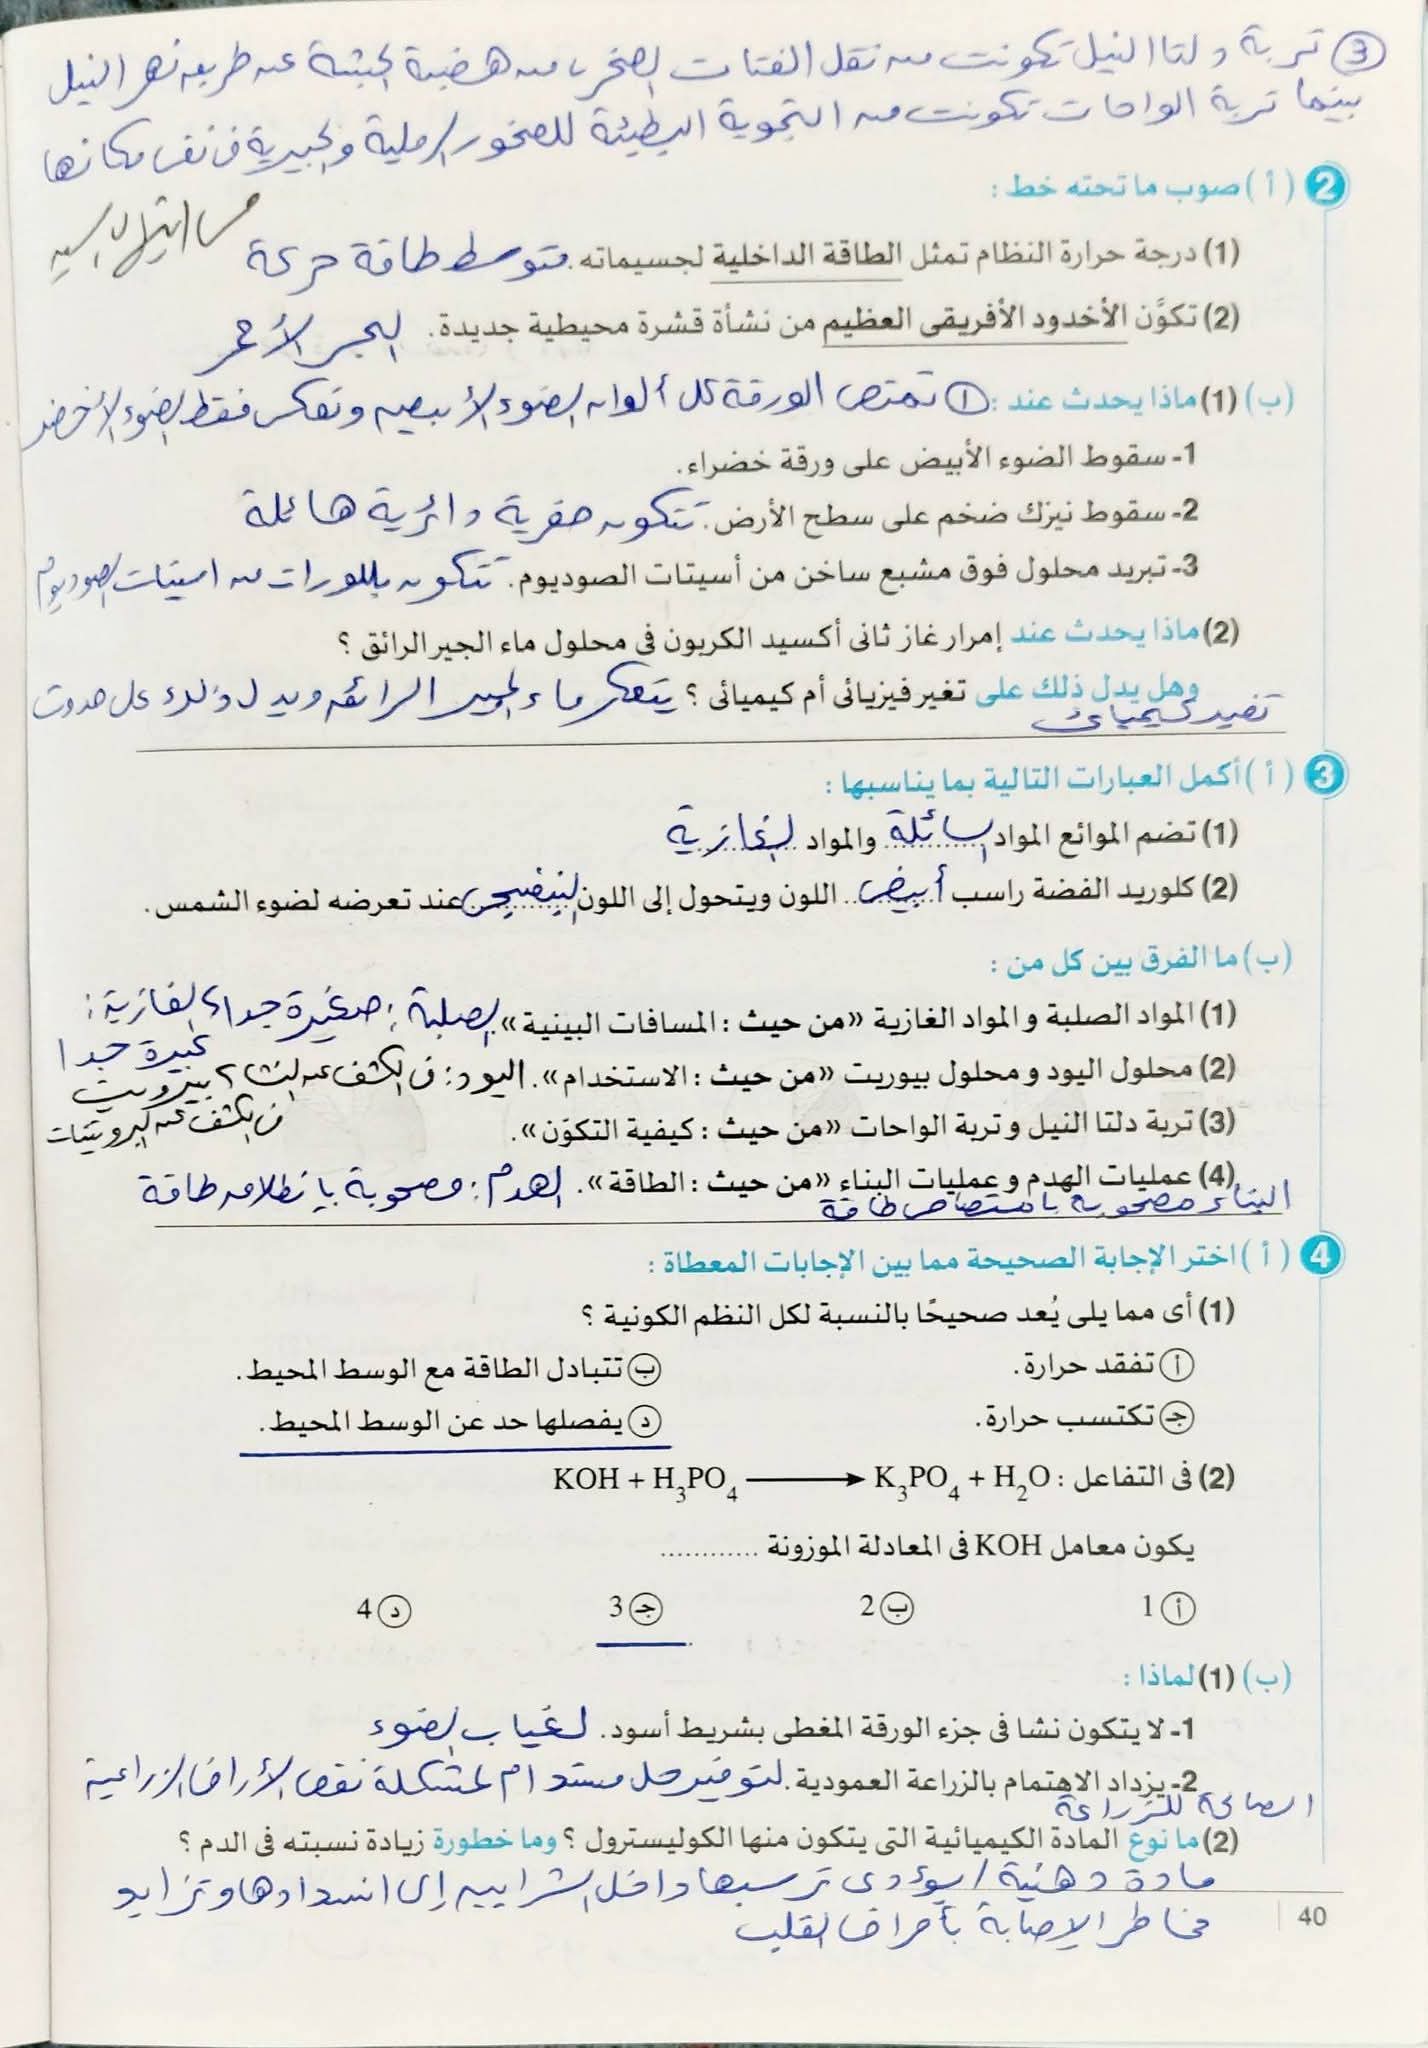 ③ تربة دلتا النيل تكونت من نقل الفتات الصخرى من هضبة الحبشة عن طريق نهر النيل
بينما تربة الواحات تكونت من التجوية البطيئة للصخور الرملية والجيرية فى نفس مكانها
2 (أ) صوب ما تحته خط :
(1) درجة حرارة النظام تمثل الطاقة الداخلية لجسيماته. متوسط طاقة حركة
(2) تكوَّن الأخدود الأفريقى العظيم من نشأة قشرة محيطية جديدة. البحر الأحمر
(ب) (1) ماذا يحدث عند : ① تمتص الورقة كل ألوان الضوء الأبيض وتعكس فقط الضوء الأخضر
1- سقوط الضوء الأبيض على ورقة خضراء.
2- سقوط نيزك ضخم على سطح الأرض. تتكون حفرية دائرية هائلة
3- تبريد محلول فوق مشبع ساخن من أسيتات الصوديوم. تتكون بللورات من اسيتات الصوديوم
(2) ماذا يحدث عند إمرار غاز ثانى أكسيد الكربون فى محلول ماء الجير الرائق ؟
وهل يدل ذلك على تغير فيزيائى أم كيميائى ؟ يتعكر ماء الجير الرائق ويدل ذلك على حدوث
تغير كيميائى
3 (أ) أكمل العبارات التالية بما يناسبها :
(1) تضم الموائع المواد السائلة والمواد الغازية
(2) كلوريد الفضة راسب أبيض اللون ويتحول إلى اللون البنفسجى عند تعرضه لضوء الشمس.
(ب) ما الفرق بين كل من :
(1) المواد الصلبة والمواد الغازية «من حيث : المسافات البينية» الصلبة : صغيرة جداً الغازية :
كبيرة جدا
(2) محلول اليود ومحلول بيوريت «من حيث : الاستخدام». اليود : فى الكشف عن النشا، بيوريت
فى الكشف عن البروتينات
(3) تربة دلتا النيل وتربة الواحات «من حيث : كيفية التكوّن».
(4) عمليات الهدم وعمليات البناء «من حيث : الطاقة». الهدم : مصحوبة بانطلاق طاقة
البناء مصحوبة بامتصاص طاقة
4 (أ) اختر الإجابة الصحيحة مما بين الإجابات المعطاة :
(1) أى مما يلى يُعد صحيحًا بالنسبة لكل النظم الكونية ؟
أ تفقد حرارة. ب تتبادل الطاقة مع الوسط المحيط.
جـ تكتسب حرارة. د يفصلها حد عن الوسط المحيط.
(2) فى التفاعل : KOH + H₃PO₄ ⟶ K₃PO₄ + H₂O
يكون معامل KOH فى المعادلة الموزونة ............
أ 1 ب 2 جـ 3 د 4
(ب) (1) لماذا :
1- لا يتكون نشا فى جزء الورقة المغطى بشريط أسود. لغياب الضوء
2- يزداد الاهتمام بالزراعة العمودية. لتوفير حل مستدام لمشكلة نقص الأراضى الزراعية
الصالحة للزراعة
(2) ما نوع المادة الكيميائية التى يتكون منها الكوليسترول ؟ وما خطورة زيادة نسبته فى الدم ؟
مادة دهنية / يؤدى ترسبها داخل الشرايين إلى انسدادها وتزايد
مخاطر الإصابة بأمراض القلب
40